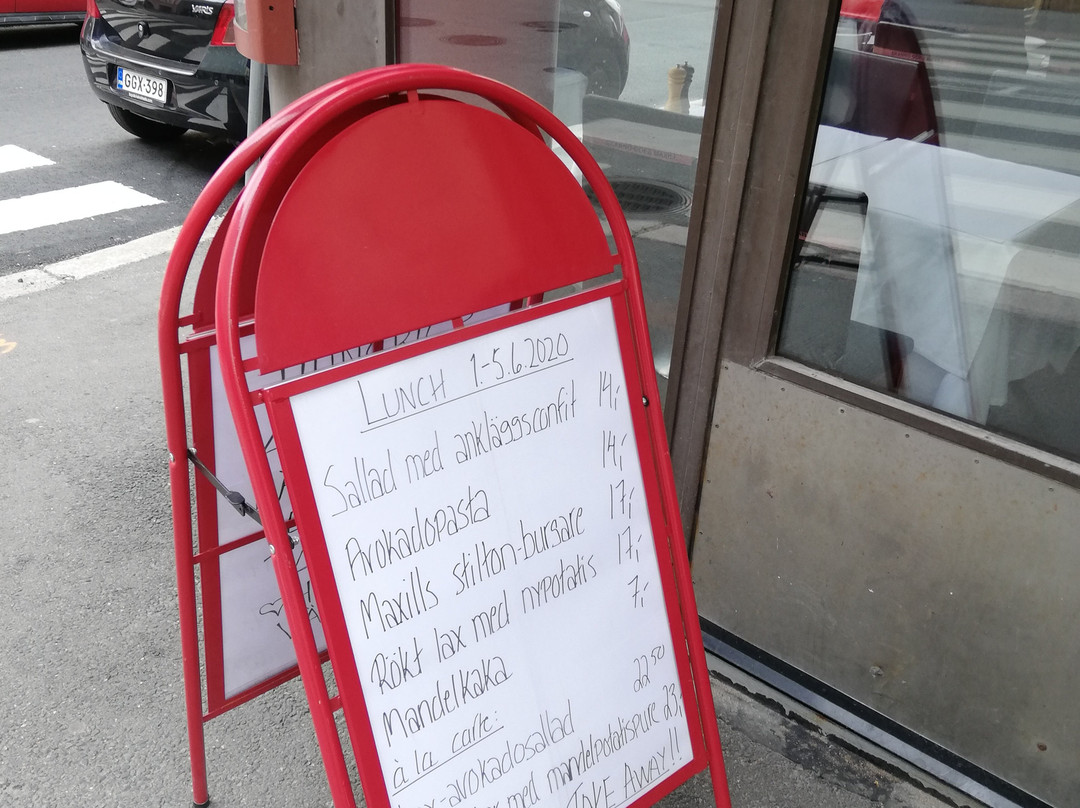 YARIS
GGX-398
LUNCH 1.-5.6.2020
Sallad med ankläggsconfit 14,-
Avokadopasta 14,-
Maxills stilton-burgare 17,-
Rökt lax med nypotatis 17,-
Mandelkaka 7,-
à la carte:
-avokadosallad 22⁵⁰
med mandelpotatispure 23,-
TAKE AWAY!!